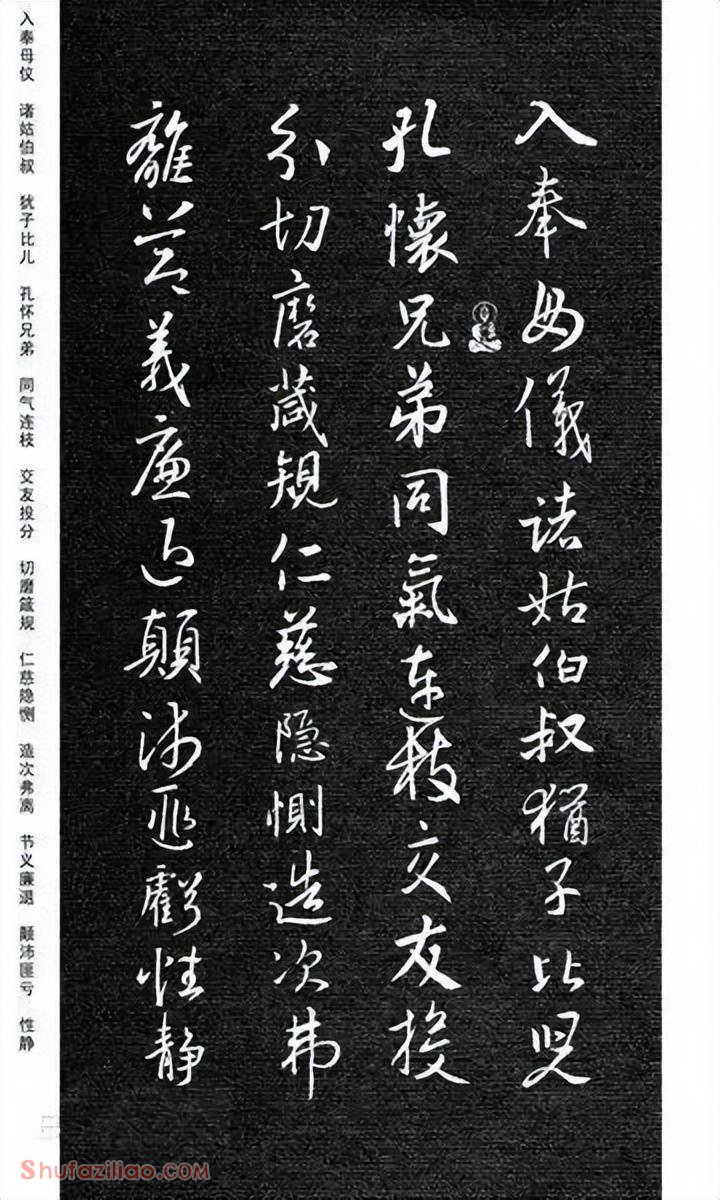 入奉母儀諸姑伯叔猶子比兒
孔懷兄弟同氣連枝交友投
分切磨箴規仁慈隱惻造次弗
離節義廉退顛沛匪虧性静
入奉母仪 诸姑伯叔 犹子比儿 孔怀兄弟 同气连枝 交友投分 切磨箴规 仁慈隐恻 造次弗离 节义廉退 颠沛匪亏 性静
Shufaziliao.com